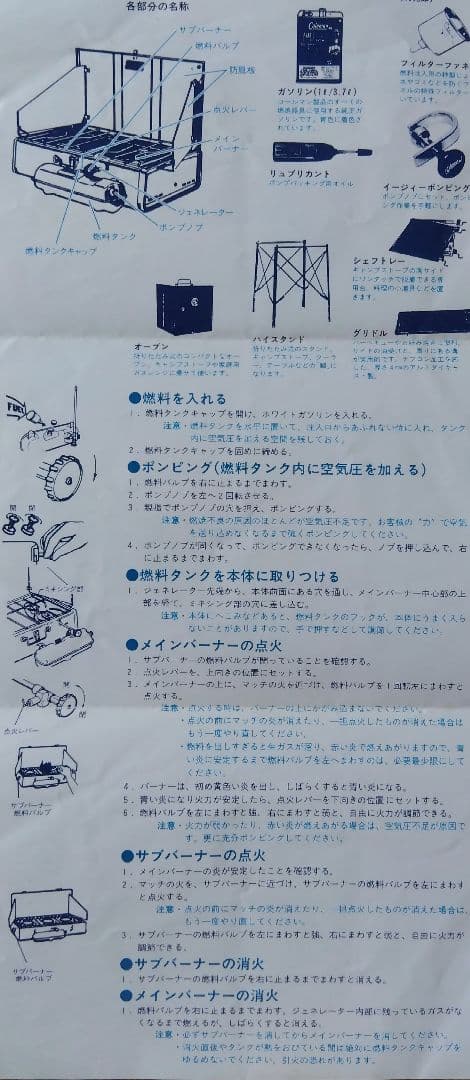 各部分の名称
サブバーナー
燃料バルブ
防風板
点火レバー
メイン
バーナー
ジェネレーター
ポンプノブ
燃料タンク
燃料タンクキャップ
Coleman
ガソリン(1ℓ/3.7ℓ)
コールマン製品のすべての
燃焼器具に使用する純正ガ
ソリンです。青色に着色さ
れています。
リュブリカント
ポンプパッキング用オイル
フィルターファネ
イージーポンピング
シェフトレー
グリドル
オーブン
折りたたみ式のコンパクトなオー
ブン。キャンプストーブや家庭用
ガスレンジに乗せて使います。
ハイスタンド
折りたたみ式のスタンド。
キャンプストーブ、クーラ
ー、テーブルなどの“脚”に
なります。
●燃料を入れる
1．燃料タンクキャップを開け、ホワイトガソリンを入れる。
注意・燃料タンクを水平に置いて、注入口からあふれない様に入れ、タンク
内に空気圧を加える空間を残しておく。
2．燃料タンクキャップを固めに締める。
●ポンピング(燃料タンク内に空気圧を加える)
1．燃料バルブを右に止まるまでまわす。
2．ポンプノブを左へ2回転させる。
3．親指でポンプノブの穴を押え、ポンピングする。
注意・燃焼不良の原因のほとんどが空気圧不足です。お客様の“力”で空気
を送り込めなくなるまで強くポンピングしてください。
4．ポンプノブが固くなって、ポンピングできなくなったら、ノブを押し込んで、右
に止まるまでまわす。
●燃料タンクを本体に取りつける
1．ジェネレーター先端から、本体前面にある穴を通し、メインバーナー中心部の上
部を経て、ミキシング部の穴に差し込む。
注意・本体にへこみなどあると、燃料タンクのフックが、本体にうまく入ら
ないことがありますので、手で押すなどして調節してください。
●メインバーナーの点火
1．サブバーナーの燃料バルブが閉っていることを確認する。
2．点火レバーを、上向きの位置にセットする。
3．メインバーナーの上に、マッチの火を近づけ、燃料バルブを1回転左にまわすと
点火する。
注意・点火する時は、バーナーの上にかがみ込まないでください。
・点火の前にマッチの炎が消えたり、一担点火したものが消えた場合は
もう一度やり直してください。
・燃料を出しすぎると生ガスが溜り、赤い炎で燃えあがりますので、青
い炎に安定するまで燃料バルブを左へまわすのは、必要最少限にして
ください。
4．バーナーは、初め黄色い炎を出し、しばらくすると青い炎になる。
5．青い炎になり火力が安定したら、点火レバーを下向きの位置にセットする。
6．燃料バルブを左にまわすと強、右にまわすと弱と、自由に火力が調節できる。
注意・火力が弱かったり、赤い炎が燃えあがる場合は、空気圧不足が原因で
す。更に充分ポンピングしてください。
●サブバーナーの点火
1．メインバーナーの炎が安定したことを確認する。
2．マッチの火を、サブバーナーに近づけ、サブバーナーの燃料バルブを左にまわす
と点火する。
注意・点火の前にマッチの炎が消えたり、一担点火したものが消えた場合は、
もう一度やり直してください。
3．サブバーナーの燃料バルブを左にまわすと強、右にまわすと弱と、自由に火力が
調節できる。
●サブバーナーの消火
1．サブバーナーの燃料バルブを右に止まるまでまわすと消える。
●メインバーナーの消火
1．燃料バルブを右に止まるまでまわす。ジェネレーター内部に残っているガスがな
くなるまで燃えるが、しばらくすると消える。
注意・必ずサブバーナーを消してからメインバーナーを消してください。
・消火直後やタンクが熱をおびている間は絶対に燃料タンクキャップを
ゆるめないでください。引火の恐れがあります。
FUEL
開
閉
ミキシング部
閉
開
点火レバー
サブバーナー
燃料バルブ
サブバーナー
燃料バルブ